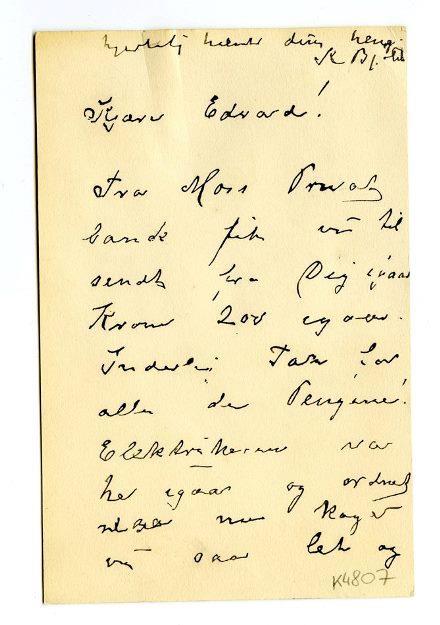 hjertelig hilsen din heng.
K Bj.
Kjære Edvard!
Fra Moss Privat
bank fik vi til
sendt fra Dig igaar
Kroner 200 igaar.
Inderlig Takk for
alle de Pengene!
Elektrikeren var
her igaar og ordnet
nu koger
vi saa let og
K4807